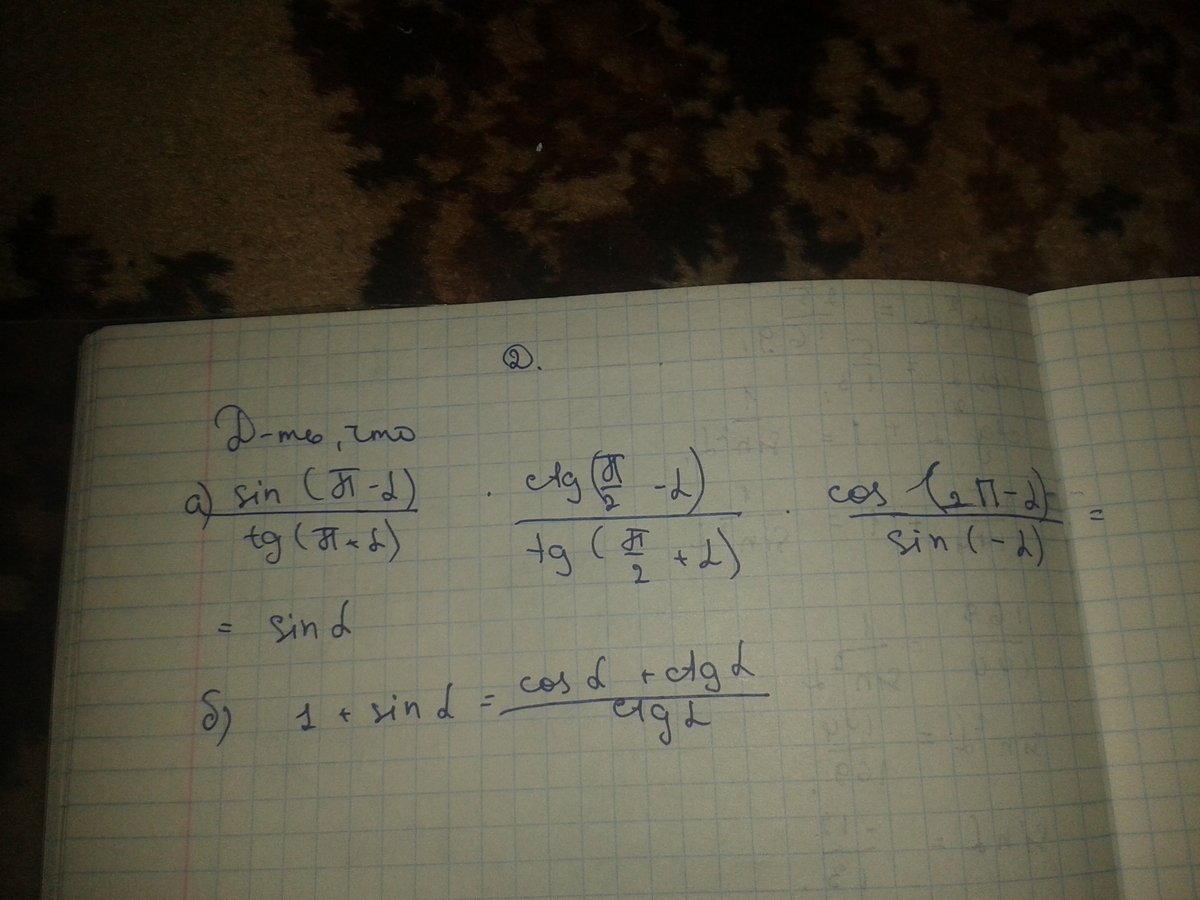 2.
Д-ть, что
а) sin (π - α) / tg (π + α) · ctg (π/2 - α) / tg (π/2 + α) · cos (2π - α) / sin (-α) =
= sin α
б) 1 + sin α = cos α + ctg α / ctg α